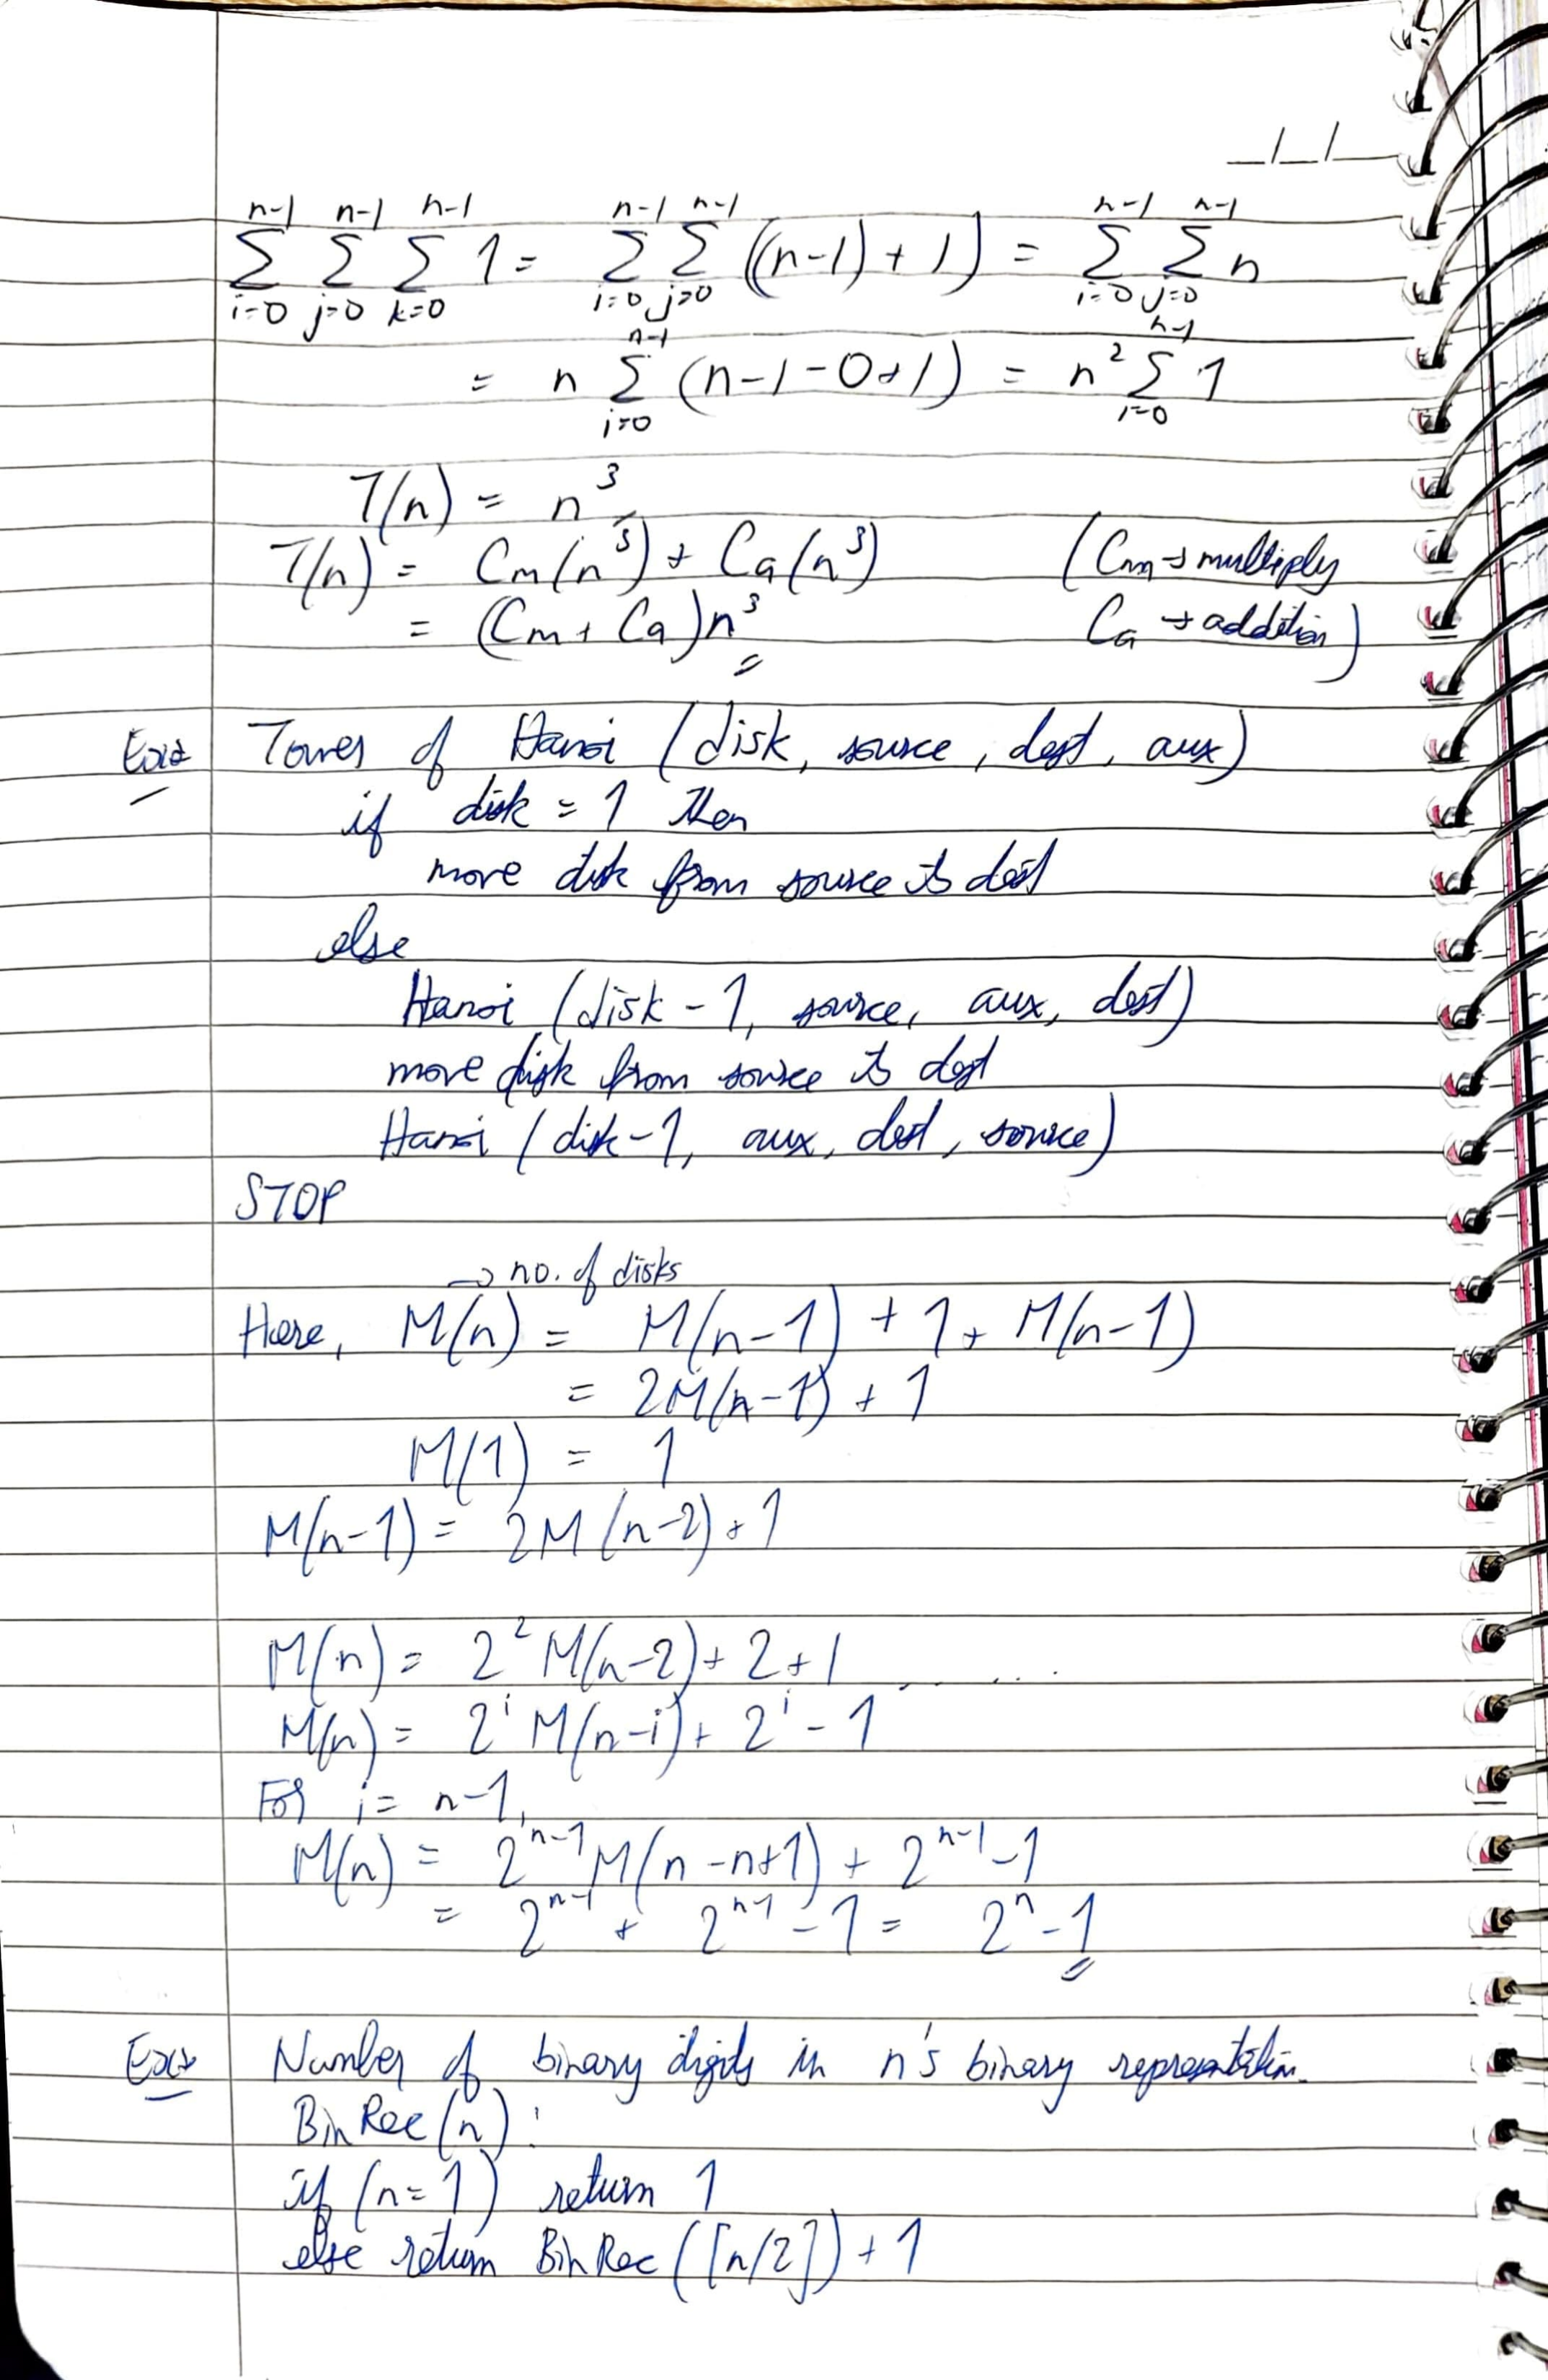 __/__/__
n-1 n-1 n-1 n-1 n-1 n-1 n-1
Σ Σ Σ 1 = Σ Σ ((n-1)+1) = Σ Σ n
i=0 j=0 k=0 i=0 j=0 i=0 j=0
n-1 n-1
= n Σ (n-1-0+1) = n² Σ 1
i=0 i=0
T(n) = n³
T(n) = Cm(n³) + Ca(n³) (Cm → multiply
= (Cm + Ca)n³ Ca → addition)
Towers of Hanoi (disk, source, dest, aux)
if disk = 1 then
move disk from source to dest
else
Hanoi (disk - 1, source, aux, dest)
move disk from source to dest
Hanoi (disk-1, aux, dest, source)
STOP
→ no. of disks
Here, M(n) = M(n-1) + 1 + M(n-1)
= 2M(n-1) + 1
M(1) = 1
M(n-1) = 2M(n-2)+1
M(n) = 2² M(n-2) + 2 + 1 . . . . .
M(n) = 2ⁱ M(n-i) + 2ⁱ - 1
For i = n-1,
M(n) = 2ⁿ⁻¹ M(n-n+1) + 2ⁿ⁻¹ - 1
= 2ⁿ⁻¹ + 2ⁿ⁻¹ - 1 = 2ⁿ - 1
Number of binary digits in n's binary representation.
BinRec(n):
if (n=1) return 1
else return BinRec([n/2]) + 1